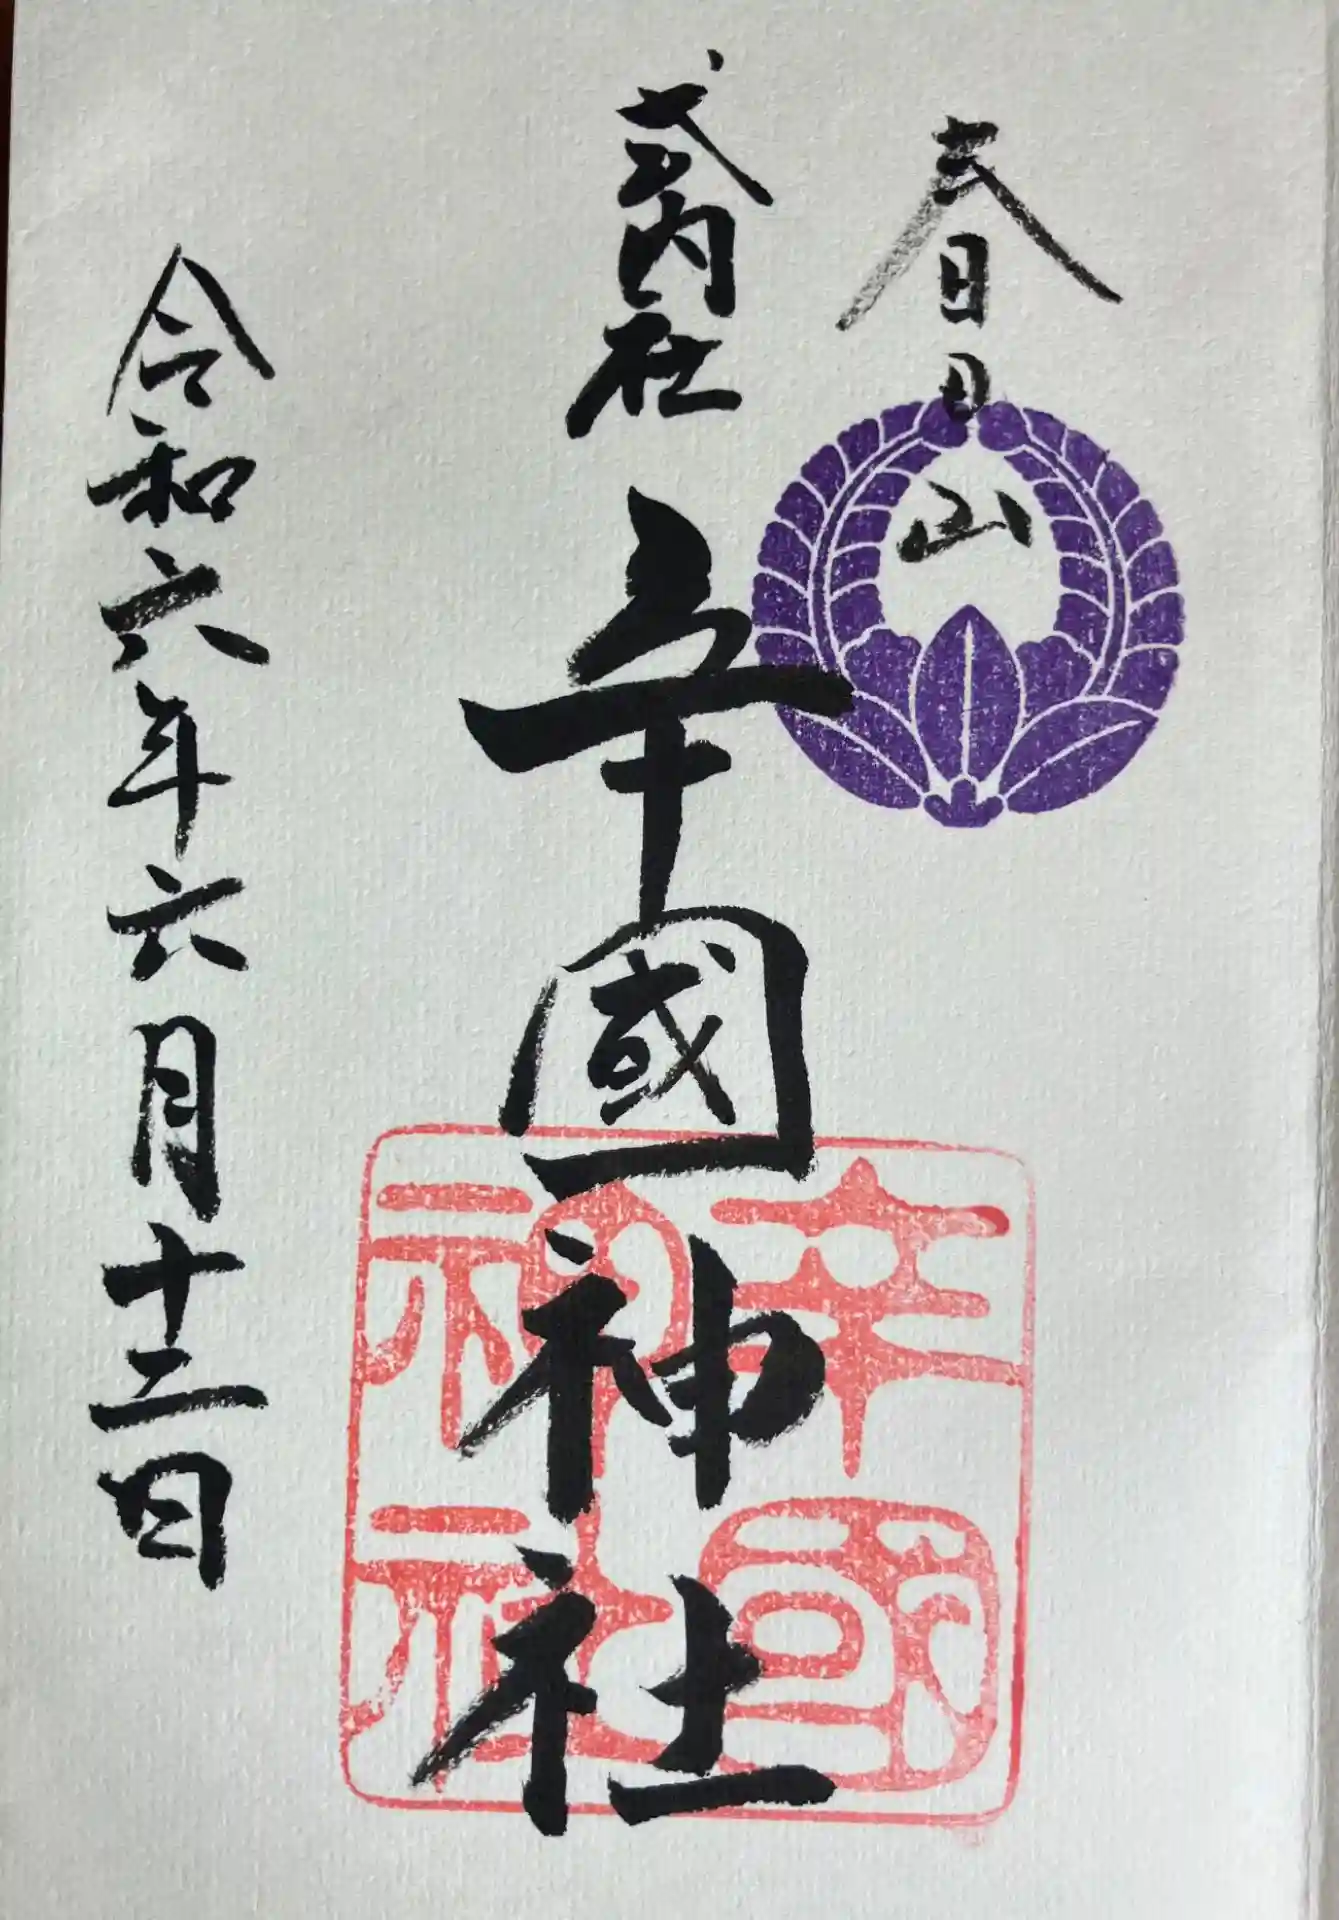 春日山
式内社
辛國神社
令和六年六月十二日
辛國
神社